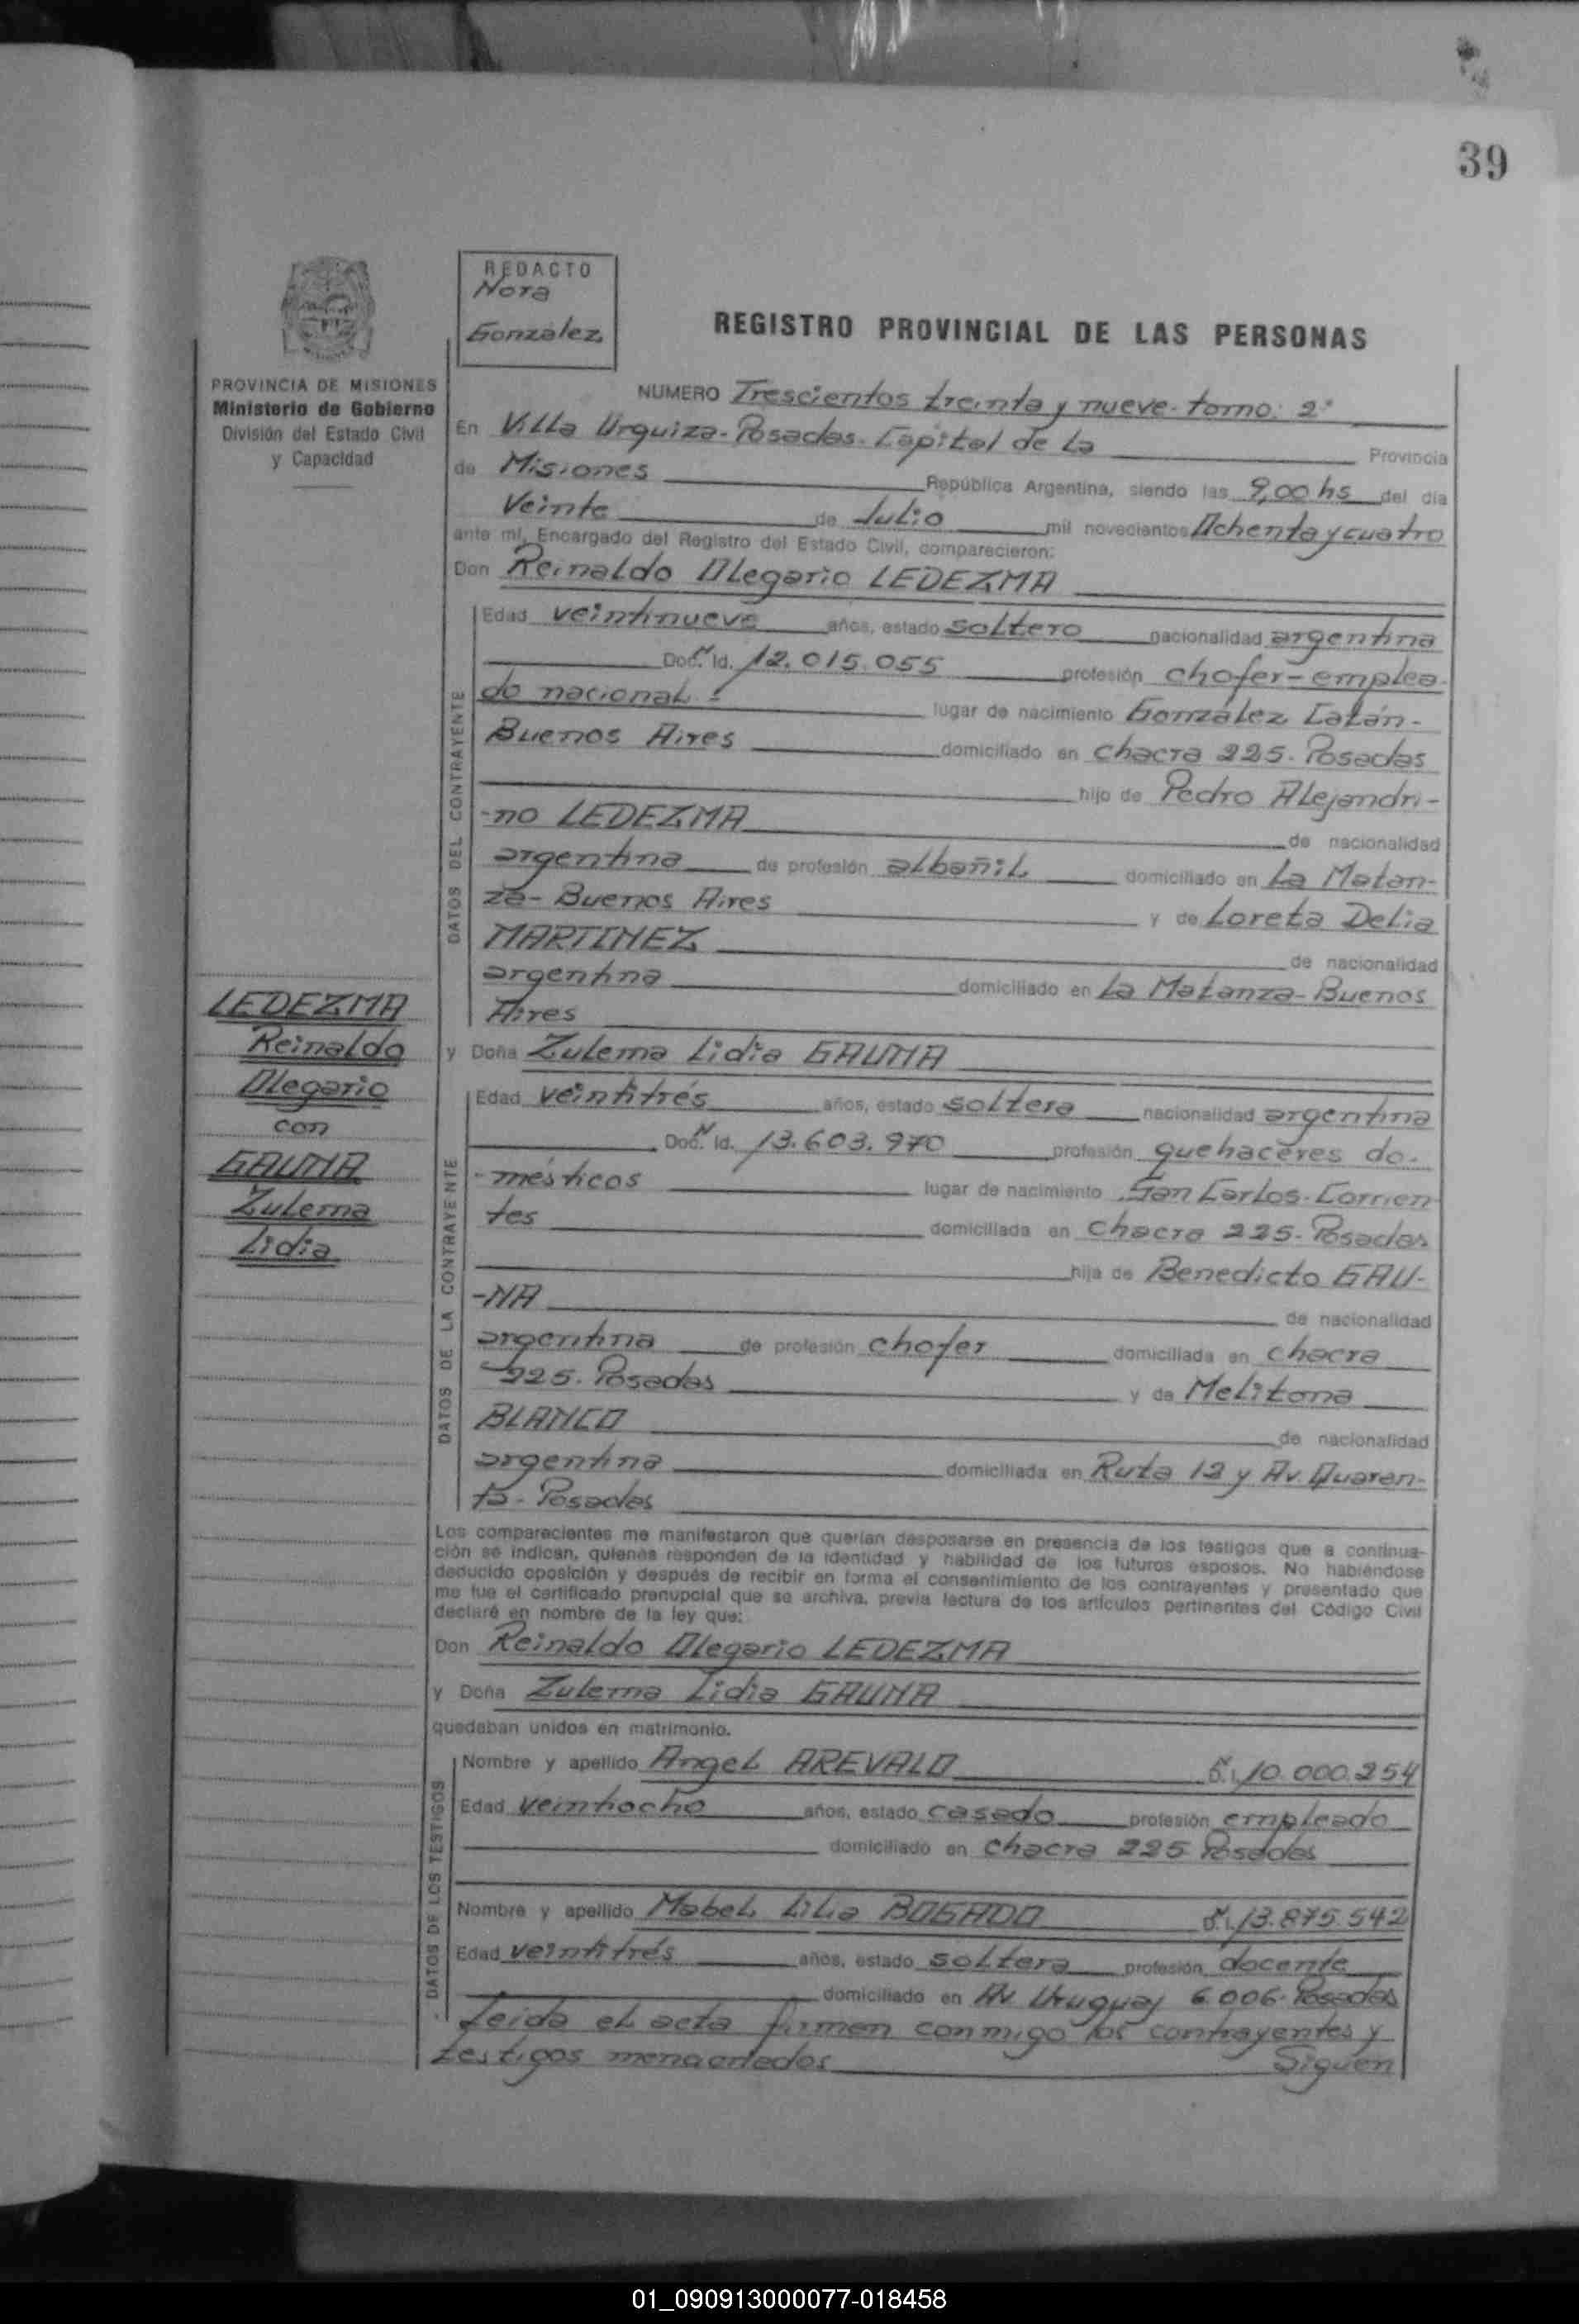 39
REDACTO
Nora
González
REGISTRO PROVINCIAL DE LAS PERSONAS
PROVINCIA DE MISIONES
Ministerio de Gobierno
División del Estado Civil
y Capacidad
NUMERO Trescientos treinta y nueve. tomo: 2°
En Villa Urquiza. Posadas. Capital de La Provincia
de Misiones República Argentina, siendo las 9,00 hs del día
Veinte de Julio mil novecientos Ochenta y cuatro
ante mí, Encargado del Registro del Estado Civil, comparecieron:
Don Reinaldo Olegario LEDEZMA
DATOS DEL CONTRAYENTE
Edad veintinueve años, estado soltero nacionalidad argentina
Doc. Id. N 12.015.055 profesión chofer-emplea-
do nacional.- lugar de nacimiento González Catán-
Buenos Aires domiciliado en chacra 225. Posadas
hijo de Pedro Alejandri-
-no LEDEZMA de nacionalidad
argentina de profesión albañil domiciliado en La Matan-
za- Buenos Aires y de Loreta Delia
MARTINEZ de nacionalidad
argentina domiciliado en La Matanza-Buenos
Aires
LEDEZMA
Reinaldo
Olegario
con
GAUNA
Zulema
Lidia
y Doña Zulema Lidia GAUNA
DATOS DE LA CONTRAYENTE
Edad veintitrés años, estado soltera nacionalidad argentina
Doc. Id. N 13.603.970 profesión quehaceres do-
-mésticos lugar de nacimiento San Carlos. Corrien
tes domiciliada en chacra 225. Posadas
hija de Benedicto GAU-
-NA de nacionalidad
argentina de profesión chofer domiciliada en chacra
225. Posadas y de Melitona
BLANCO de nacionalidad
argentina domiciliada en Ruta 12 y Av. Quaren-
ta- Posadas
Los comparecientes me manifestaron que querían desposarse en presencia de los testigos que a continua-
ción se indican, quienes responden de la identidad y habilidad de los futuros esposos. No habiéndose
deducido oposición y después de recibir en forma el consentimiento de los contrayentes y presentado que
me fue el certificado prenupcial que se archiva, previa lectura de los artículos pertinentes del Código Civil
declaré en nombre de la ley que:
Don Reinaldo Olegario LEDEZMA
y Doña Zulema Lidia GAUNA
quedaban unidos en matrimonio.
DATOS DE LOS TESTIGOS
Nombre y apellido Angel AREVALO 10.000.254
Edad veintiocho años, estado casado profesión empleado
domiciliado en chacra 225 Posadas
Nombre y apellido Mabel Lilia BOGADO 13.875.542
Edad veintitrés años, estado soltera profesión docente
domiciliado en Av. Uruguay 6.006. Posadas
Leída el acta firman conmigo los contrayentes y
testigos mencionados Siguen
01_090913000077-018458